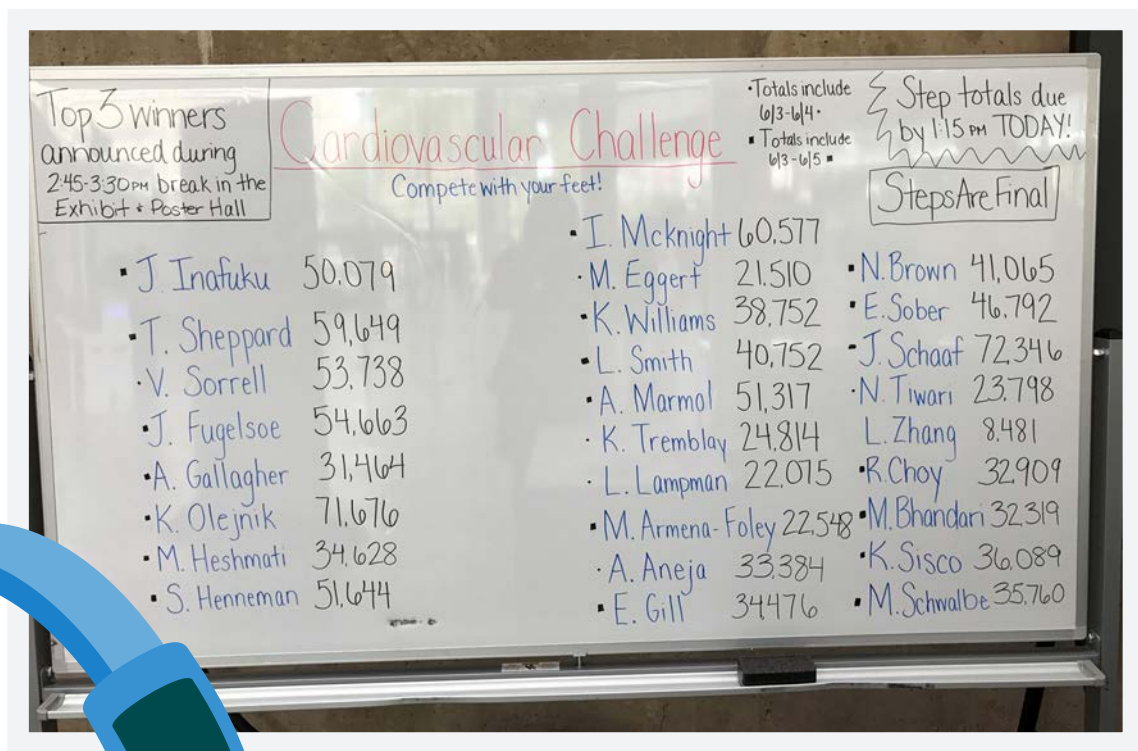 Top 3 winners
announced during
2:45-3:30PM break in the
Exhibit + Poster Hall
Cardiovascular Challenge
Compete with your feet!
•Totals include
6/3-6/4•
▪ Totals include
6/3-6/5 ▪
Step totals due
by 1:15 PM TODAY!
Steps Are Final
▪ J. Inafuku 50,079
▪ T. Sheppard 59,649
• V. Sorrell 53,738
▪ J. Fugelsoe 54,663
▪ A. Gallagher 31,464
▪ K. Olejnik 71,676
▪ M. Heshmati 34,628
▪ S. Henneman 51,644
▪ I. Mcknight 60,577
• M. Eggert 21,510
▪ K. Williams 38,752
▪ L. Smith 40,752
▪ A. Marmol 51,317
• K. Tremblay 24,814
• L. Lampman 22,075
▪ M. Armena-Foley 22,548
• A. Aneja 33,384
▪ E. Gill 34476
▪ N. Brown 41,065
▪ E. Sober 46,792
▪ J. Schaaf 72,346
• N. Tiwari 23,798
L. Zhang 8,481
▪ R. Choy 32,909
▪ M. Bhandari 32,319
▪ K. Sisco 36,089
▪ M. Schwalbe 35,760